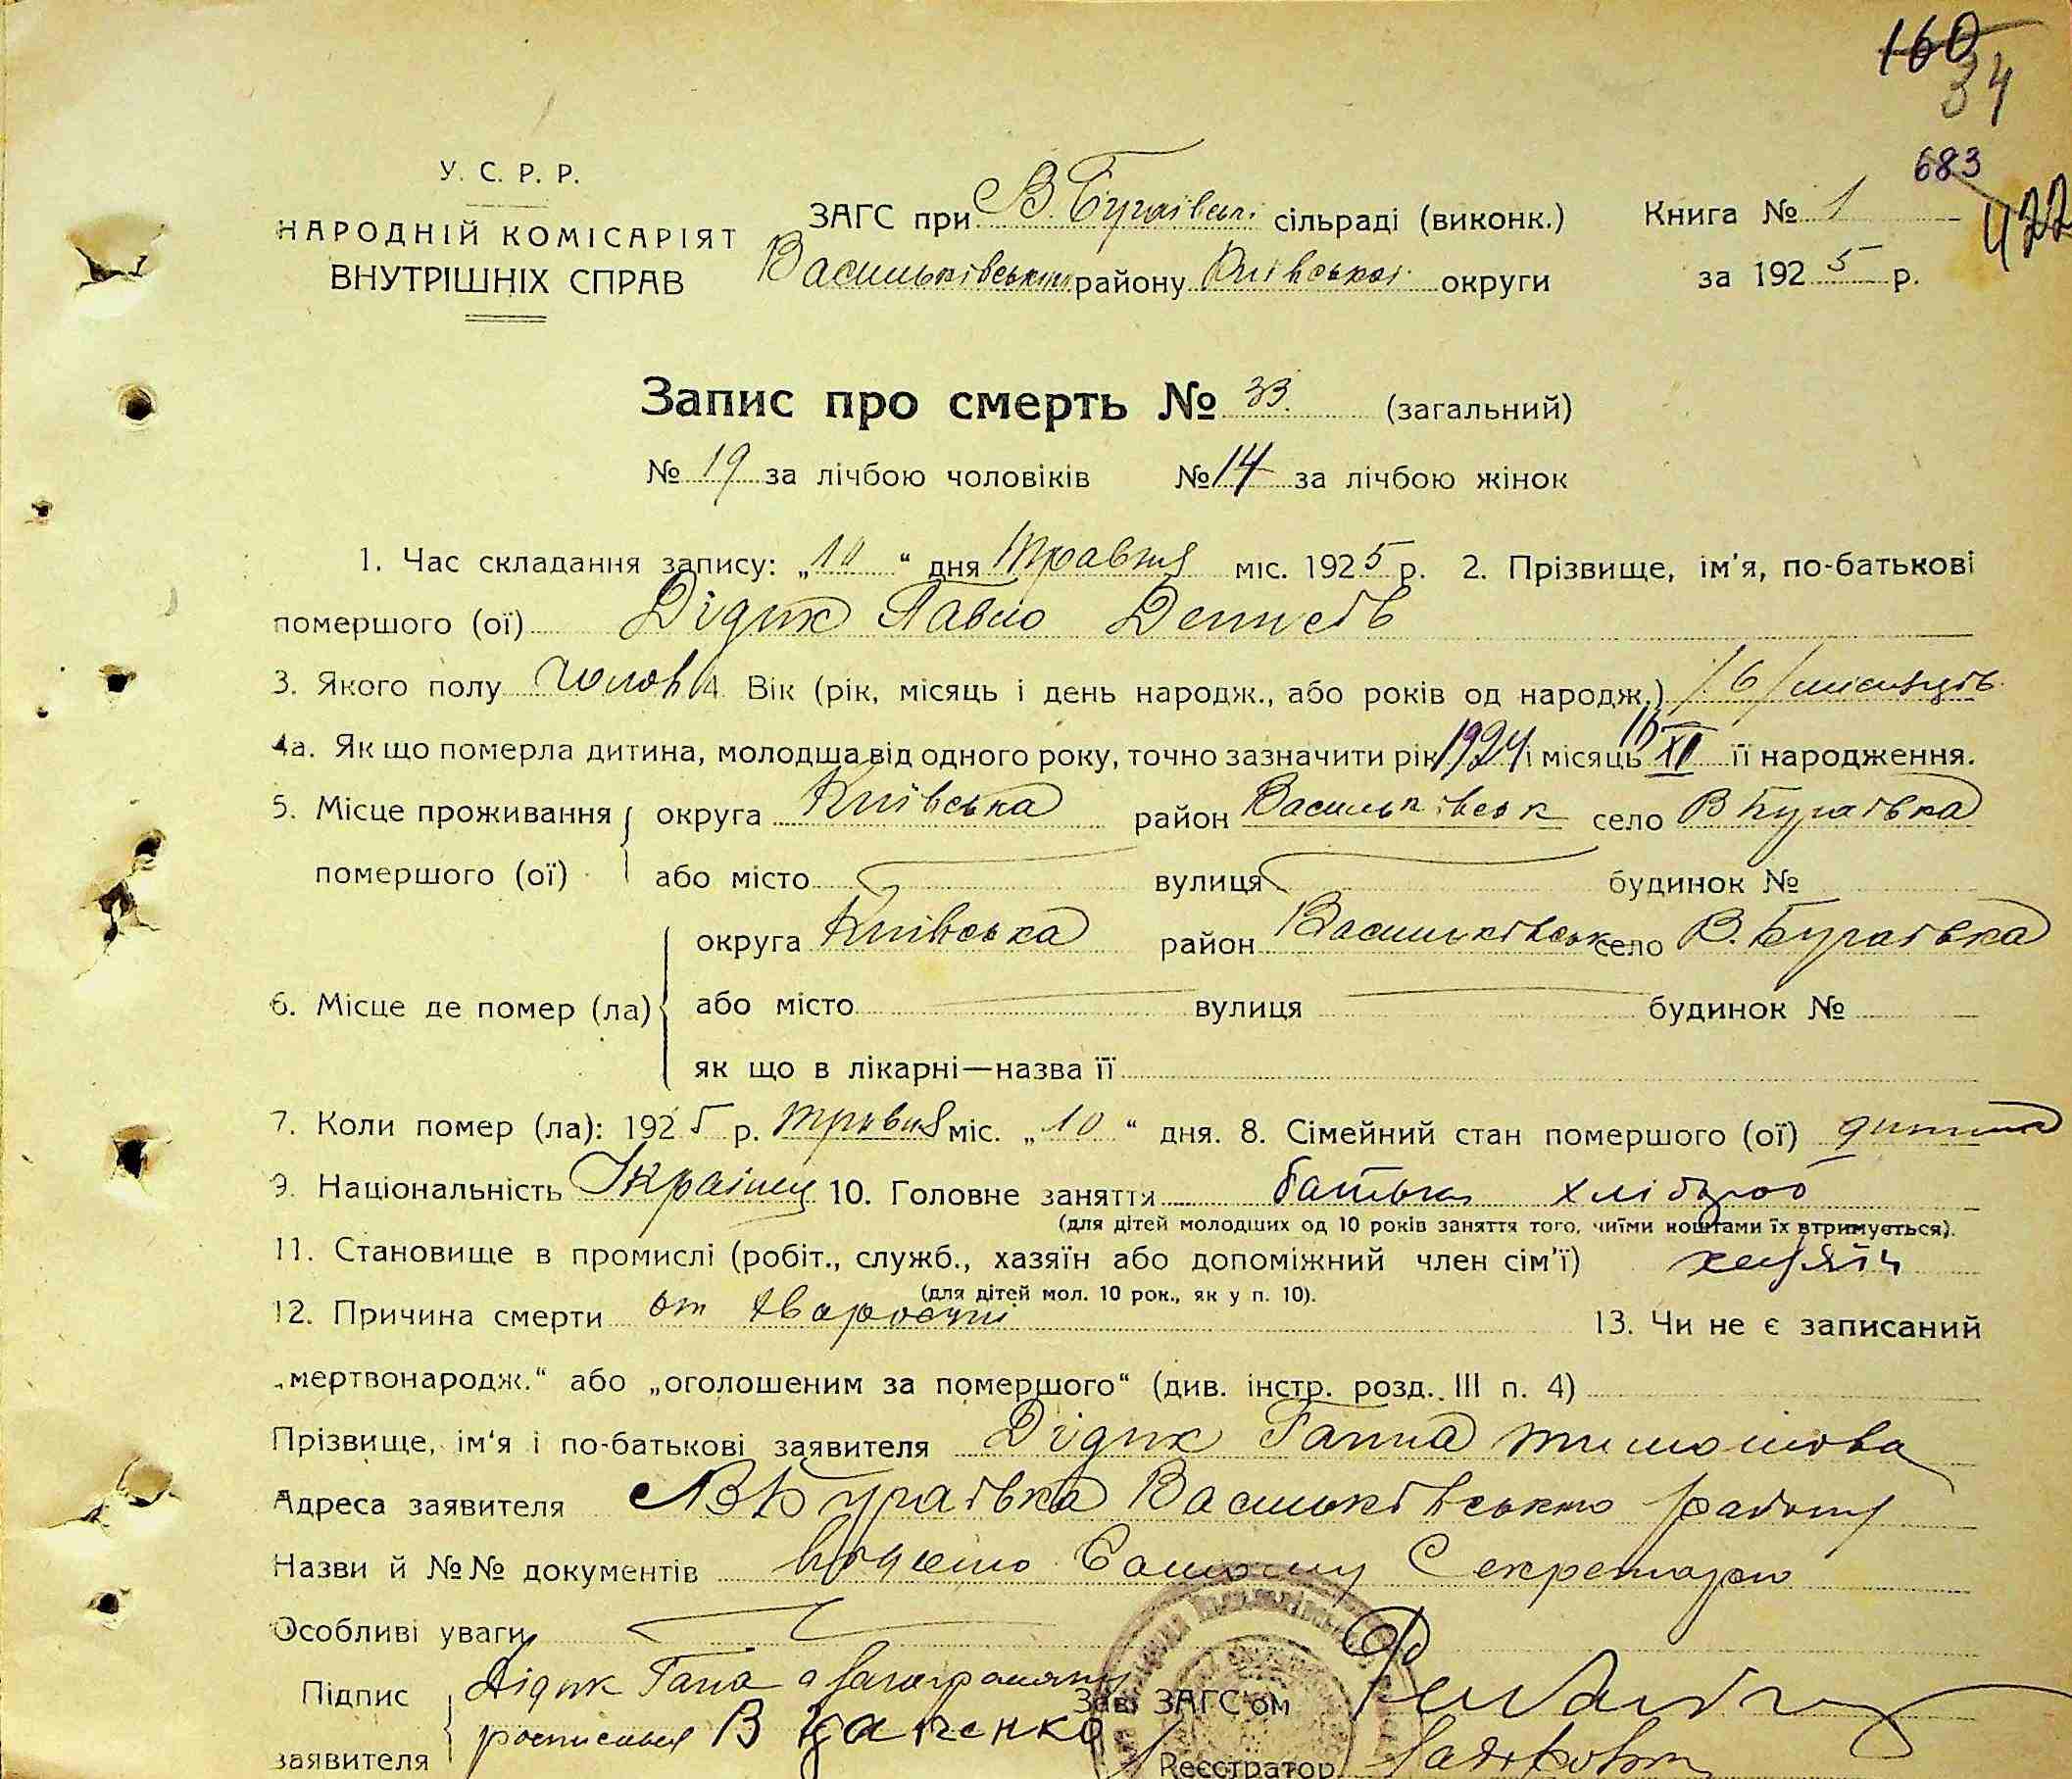 160
34
683
422
У. С. Р. Р.
НАРОДНІЙ КОМІСАРІЯТ
ВНУТРІШНІХ СПРАВ
ЗАГС при В. Бугаївськ. сільраді (виконк.)
Васильківського району Київської округи
Книга № 1
за 1925 р.
Запис про смерть № 33. (загальний)
№ 19 за лічбою чоловіків № 14 за лічбою жінок
1. Час складання запису: „10“ дня Травня міс. 1925 р. 2. Прізвище, ім'я, по-батькові
помершого (ої) Дідик Павло Денисів
3. Якого полу чолов 4. Вік (рік, місяць і день народж., або років од народж.) /6/ місяців
4а. Як що померла дитина, молодша від одного року, точно зазначити рік 1924 і місяць XI її народження.
5. Місце проживання округа Київська район Васильківськ село В Бугаївка
помершого (ої) або місто вулиця будинок №
округа Київська район Васильківськ село В. Бугаївка
6. Місце де помер (ла) або місто вулиця будинок №
як що в лікарні—назва її
7. Коли помер (ла): 1925 р. травня міс. „10“ дня. 8. Сімейний стан помершого (ої) дитина
9. Національність Українец 10. Головне заняття батька хлібороб
(для дітей молодших од 10 років заняття того, чиїми коштами їх втримується).
11. Становище в промислі (робіт., служб., хазяїн або допоміжний член сім'ї) хазяїн
(для дітей мол. 10 рок., як у п. 10).
12. Причина смерти от хворости 13. Чи не є записаний
„мертвонародж.“ або „оголошеним за помершого“ (див. інстр. розд. III п. 4)
Прізвище, ім'я і по-батькові заявителя Дідик Ганна тимошова
Адреса заявителя В Бугаївка Васильківського району
Назви й №№ документів відомо Самому Секретарю
Особливі уваги
Підпис Дідик Гана а
заявителя росписався В
Зав. ЗАГС'ом
Реєстратор